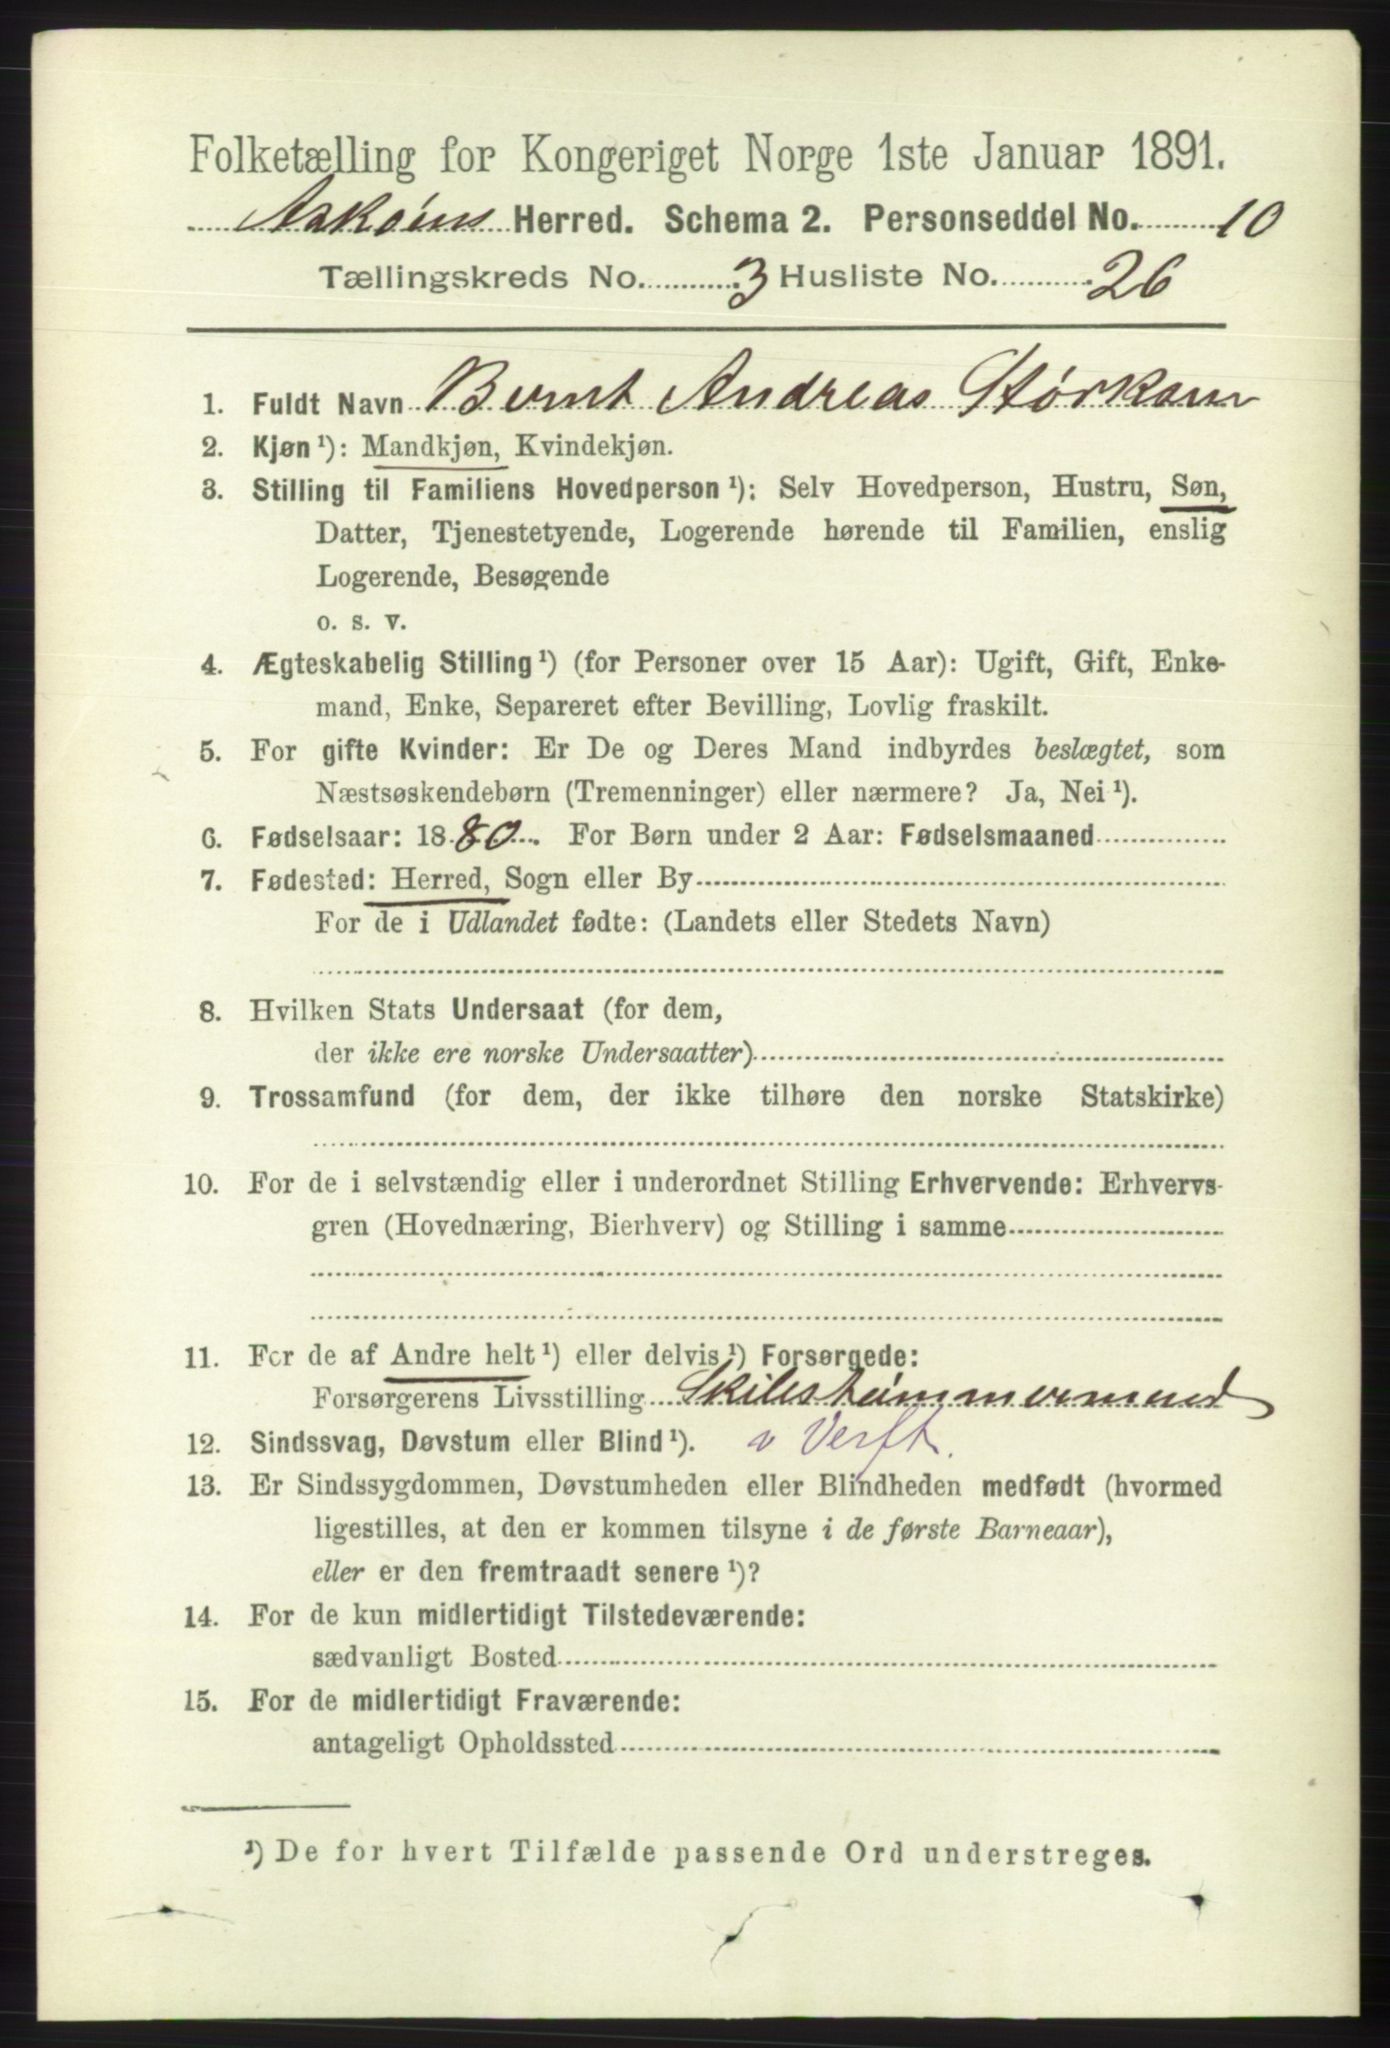 Folketælling for Kongeriget Norge 1ste Januar 1891.
Askøens Herred. Schema 2. Personseddel No. 10
Tællingskreds No. 3 Husliste No. 26
1. Fuldt Navn Bernt Andreas Størksen
2. Kjøn ¹): Mandkjøn, Kvindekjøn.
3. Stilling til Familiens Hovedperson ¹): Selv Hovedperson, Hustru, Søn,
Datter, Tjenestetyende, Logerende hørende til Familien, enslig
Logerende, Besøgende
o. s. v.
4. Ægteskabelig Stilling ¹) (for Personer over 15 Aar): Ugift, Gift, Enke-
mand, Enke, Separeret efter Bevilling, Lovlig fraskilt.
5. For gifte Kvinder: Er De og Deres Mand indbyrdes beslægtet, som
Næstsøskendebørn (Tremenninger) eller nærmere? Ja, Nei ¹).
6. Fødselsaar: 1880. For Børn under 2 Aar: Fødselsmaaned
7. Fødested: Herred, Sogn eller By
For de i Udlandet fødte: (Landets eller Stedets Navn)
8. Hvilken Stats Undersaat (for dem,
der ikke ere norske Undersaatter)
9. Trossamfund (for dem, der ikke tilhøre den norske Statskirke)
10. For de i selvstændig eller i underordnet Stilling Erhvervende: Erhvervs-
gren (Hovednæring, Bierhverv) og Stilling i samme
11. For de af Andre helt ¹) eller delvis ¹) Forsørgede:
Forsørgerens Livsstilling Skibstømmermand
12. Sindssvag, Døvstum eller Blind ¹). v Verft.
13. Er Sindssygdommen, Døvstumheden eller Blindheden medfødt (hvormed
ligestilles, at den er kommen tilsyne i de første Barneaar),
eller er den fremtraadt senere ¹)?
14. For de kun midlertidigt Tilstedeværende:
sædvanligt Bosted
15. For de midlertidigt Fraværende:
antageligt Opholdssted
¹) De for hvert Tilfælde passende Ord understreges.